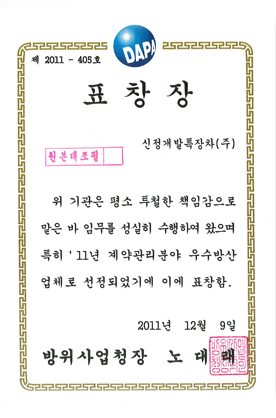 DAPA
제 2011 - 405호
표 창 장
신정개발특장차(주)
원본대조필
위 기관은 평소 투철한 책임감으로
맡은 바 임무를 성실히 수행하여 왔으며
특히 '11년 계약관리분야 우수방산
업체로 선정되었기에 이에 표창함.
2011년 12월 9일
방위사업청장 노 대 래